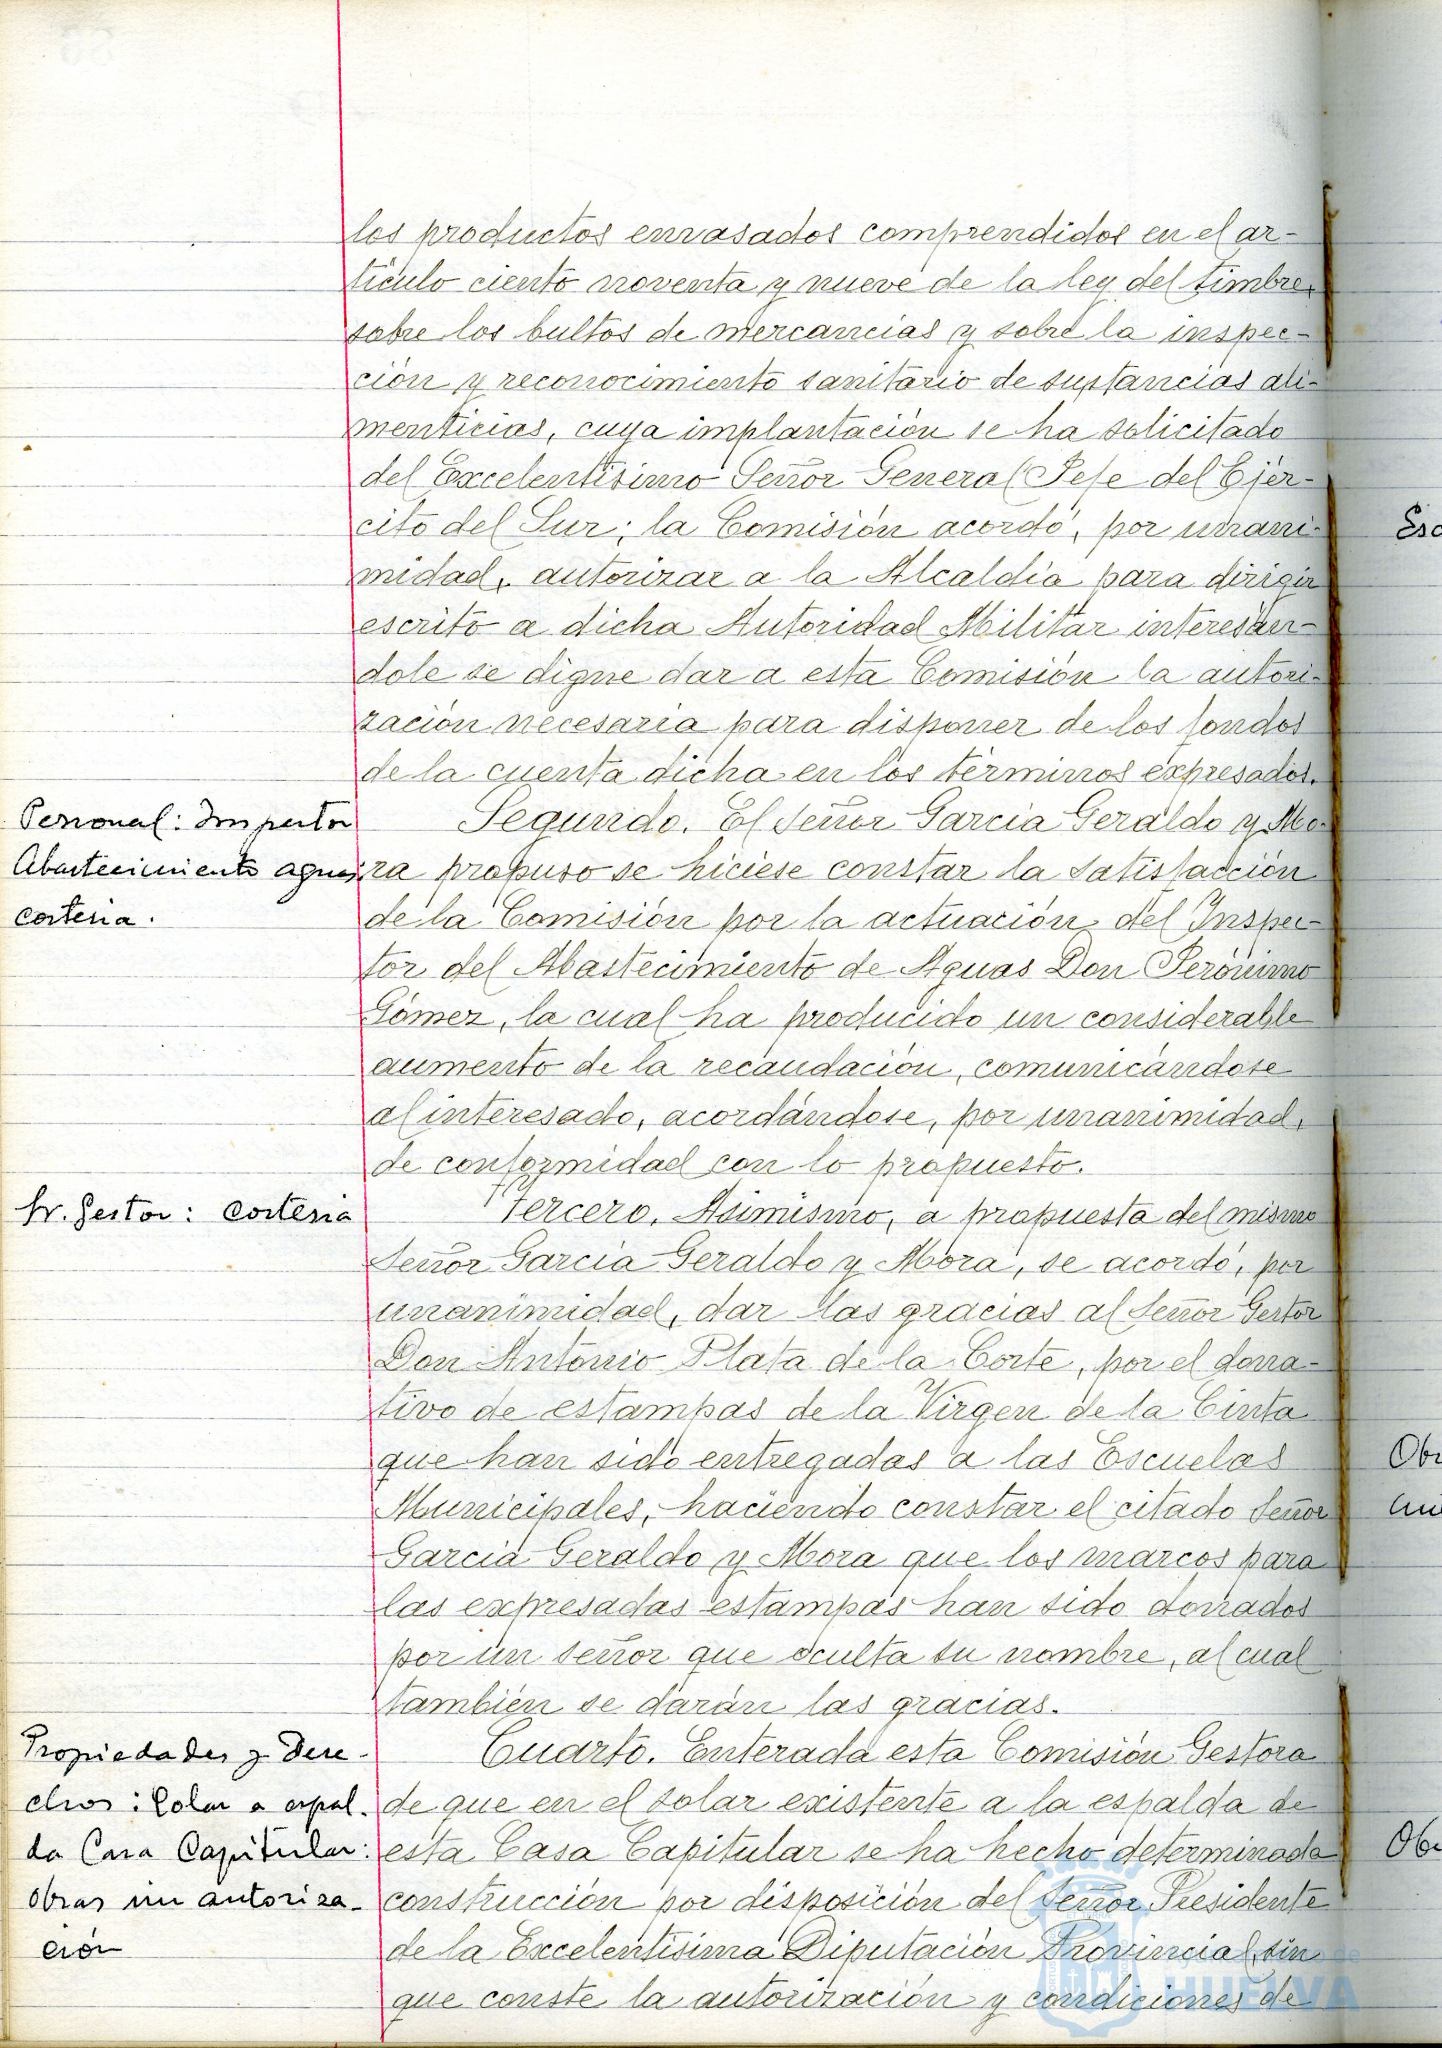 los productos envasados comprendidos en el ar-
tículo ciento noventa y nueve de la ley del timbre,
sobre los bultos de mercancías y sobre la inspec-
ción y reconocimiento sanitario de sustancias ali-
menticias, cuya implantación se ha solicitado
del Excelentísimo Señor General Jefe del Ejér-
cito del Sur; la Comisión acordó, por unani-
midad, autorizar a la Alcaldía para dirigir
escrito a dicha Autoridad Militar interesán-
dole se digne dar a esta Comisión la autori-
zación necesaria para disponer de los fondos
de la cuenta dicha en los términos expresados.
Personal: Inspector
Abastecimiento aguas:
cortesía.
Segundo. El Señor García Geraldo y Mo-
ra propuso se hiciese constar la satisfacción
de la Comisión por la actuación del Inspec-
tor del Abastecimiento de Aguas Don Jerónimo
Gómez, la cual ha producido un considerable
aumento de la recaudación, comunicándose
al interesado, acordándose, por unanimidad,
de conformidad con lo propuesto.
Sr. Gestor: cortesía
Tercero. Asimismo, a propuesta del mismo
Señor García Geraldo y Mora, se acordó, por
unanimidad, dar las gracias al Señor Gestor
Don Antonio Plata de la Corte, por el dona-
tivo de estampas de la Virgen de la Cinta
que han sido entregadas a las Escuelas
Municipales, haciendo constar el citado Señor
García Geraldo y Mora que los marcos para
las expresadas estampas han sido donados
por un señor que oculta su nombre, al cual
también se darán las gracias.
Propiedades y Dere-
chos: Solar a espal-
da Casa Capitular:
obras sin autoriza-
ción
Cuarto. Enterada esta Comisión Gestora
de que en el solar existente a la espalda de
esta Casa Capitular se ha hecho determinada
construcción por disposición del Señor Presidente
de la Excelentísima Diputación Provincial, sin
que conste la autorización y condiciones de
Esc
Obr
Obr
HUELVA